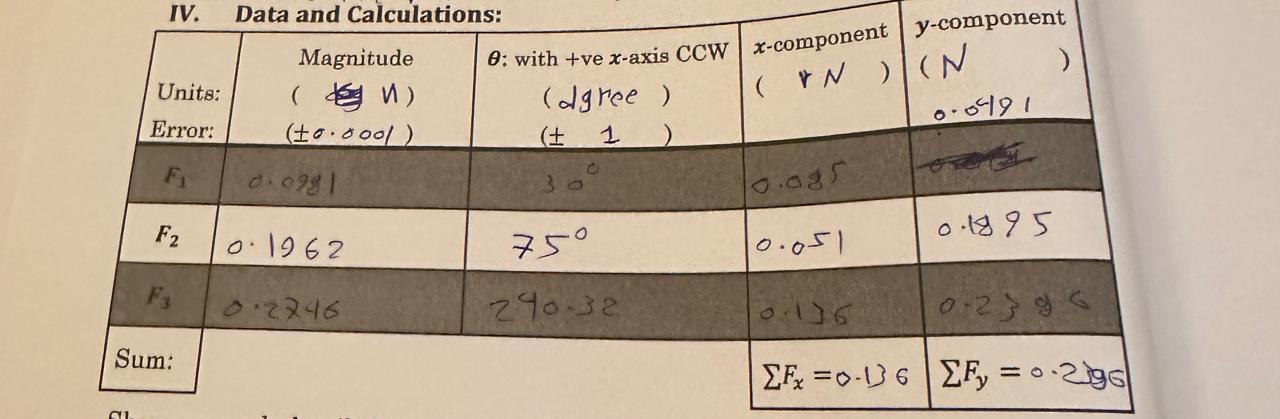 IV. Data and Calculations:
Magnitude θ: with +ve x-axis CCW x-component y-component
Units: ( N) (dgree ) ( N ) (N )
Error: (±0.0001) (± 1 ) 0.0491
F₁ 0.0981 30° 0.085
F₂ 0.1962 75° 0.051 0.1895
F₃ 0.2746 240.32 0.136 0.2386
Sum: ∑Fₓ =0.136 ∑Fᵧ = 0.2386